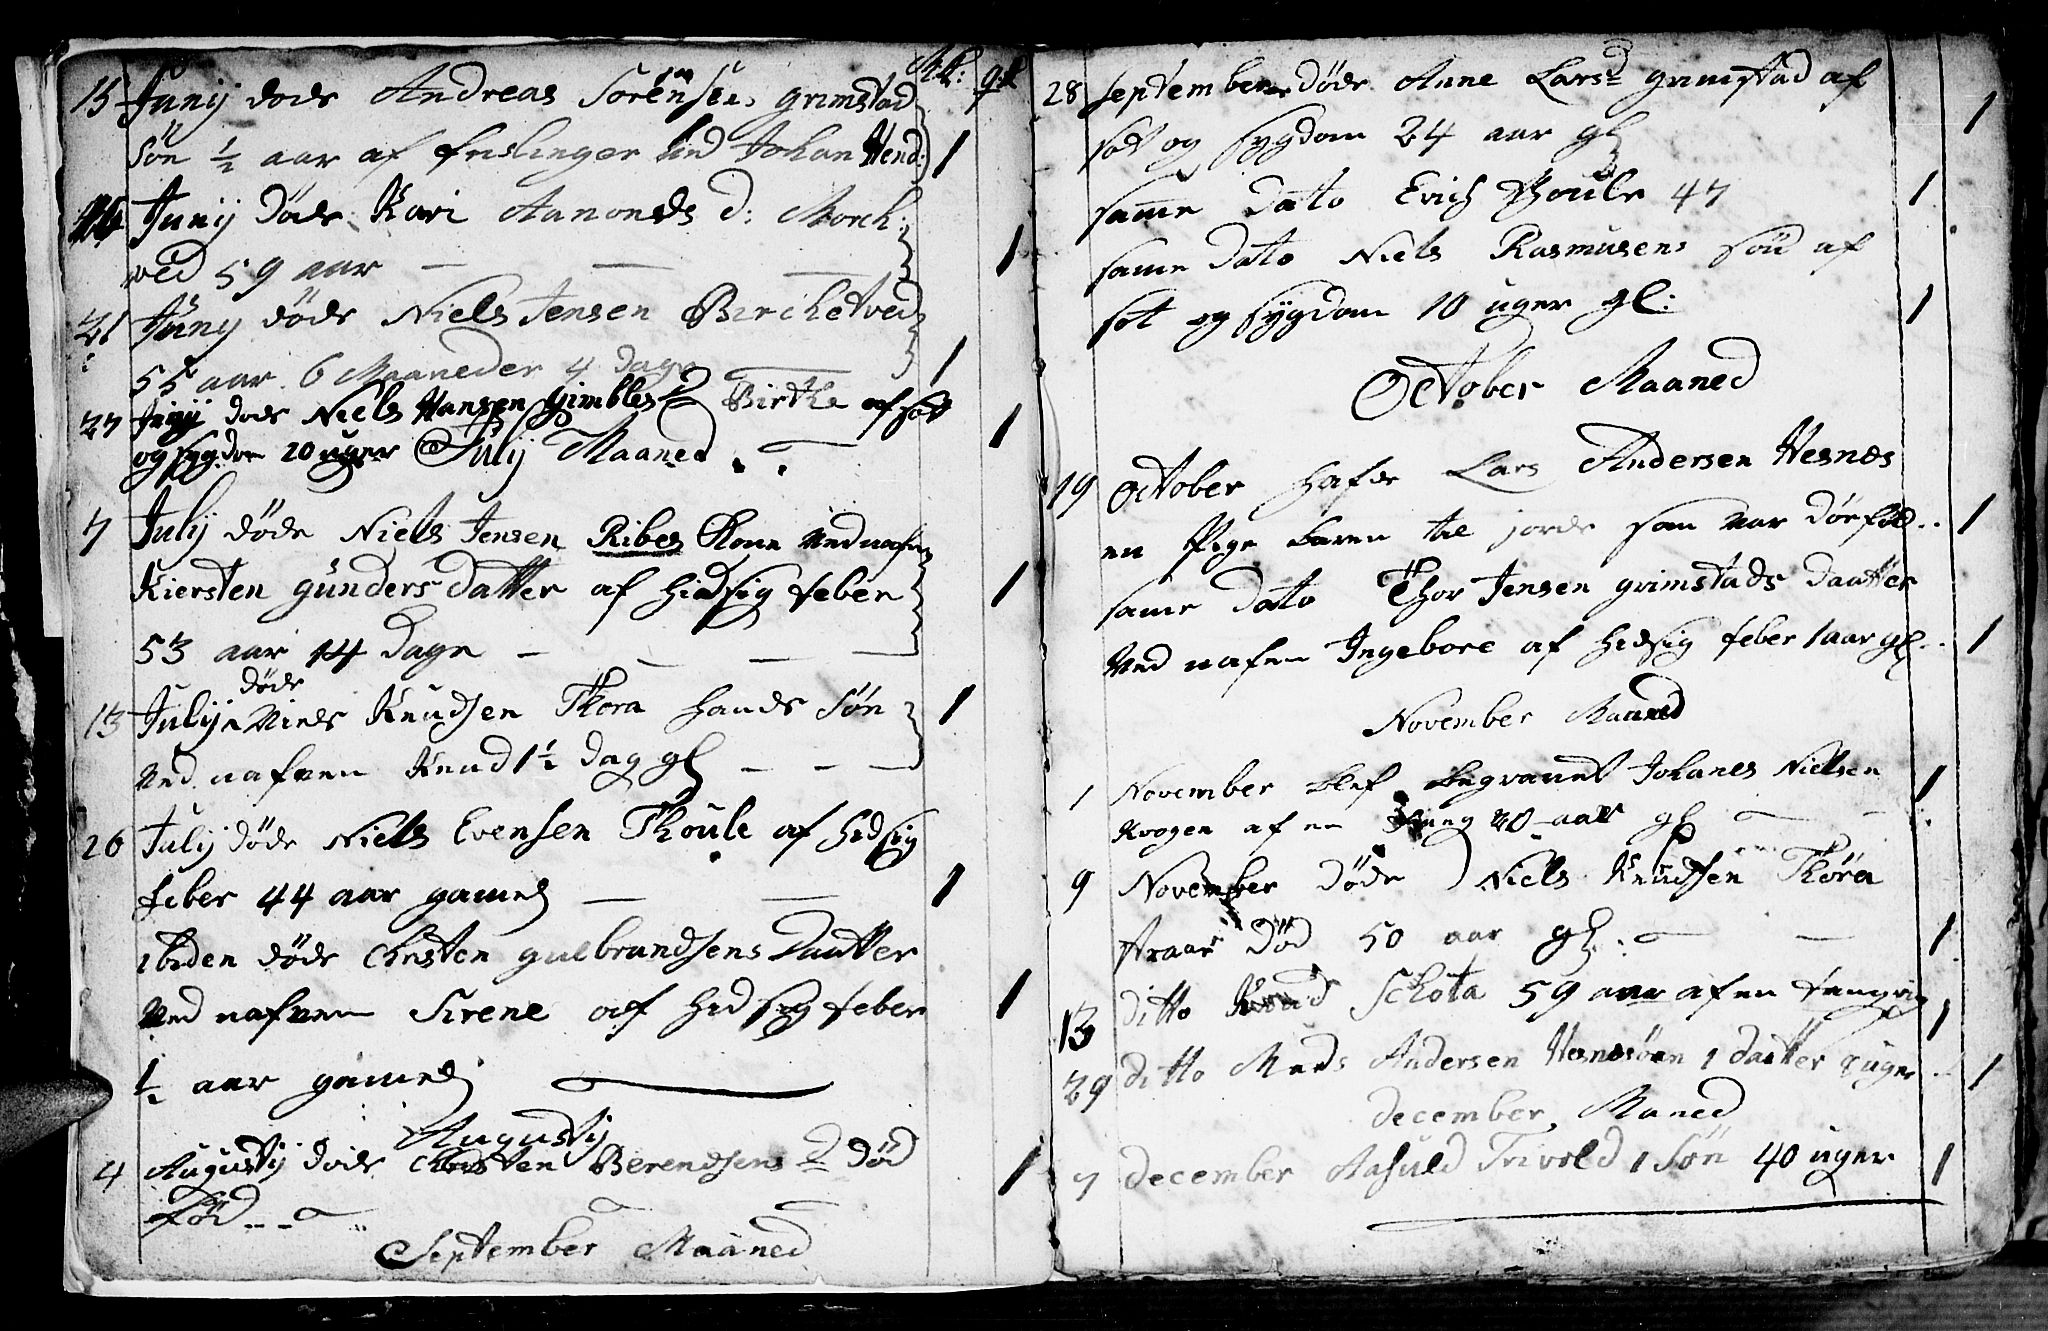 Mk: qk
15 Junij døde Andreas Sørensens grimstad
Søn ½ aar af frislinger ved Johan Hend:
16 Junij døde Kari Aamonds d: Morch:
ved 59 aar
21 Juny døde Niels Jensen Birchetved
55 aar 6 Maaneder 4 dage
27 Junij døde Niels Hansen Gimbles D Birthe af sot
og sygdom 20 uger Julij Maaned
7 Julij døde Niels Jensen Ribes Kone ved nafn
Kiersten gunders datter af hidsig feber
53 aar 14 dage
døde
13 Julij Niels Knudsen Thora hands søn
ved nafnen Knud 1½ dag gl
26 Julij døde Niels Evensen Thoule af hidsig
feber 44 aar gamel
ibiden døde Christen gulbrandsens Daatter
ved nafnen Sirene af hidsig feber
½ aar gamel
Augustij
4 Augustij døde Christen Berendsens D død
fød
September Maaned
28 september døde Anne Larsd grimstad af
sot og sygdom 24 aar gl
samme dato Erich Thoule 47
same dato Niels Rasmusens søn af
sot og sygdom 10 uger gl:
October Maaned
19 October hafde Lars Andersen Hesnes
en Pige baren til jorde som var dødfød
same dato Thor Jensen grimstads daatter
ved nafn Ingebore af hidsig feber 1 aar gl
November Maaned
1 November blef begravet Johanes Nielsen
Krogen af en 20 aar gl
9 November døde Niels Knudsen Thøra
fraar død 50 aar gl
13 ditto Knud Schota 59 aar af en
29 ditto Mads Andersen Hesnesøen 1 datter 8 uger
december Maned
7 december Aasuld Trivold 1 Søn 40 uger